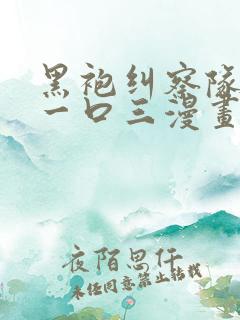 黑袍纠察队
一口三漫畫
夜陌思仟
未经同意禁止转载